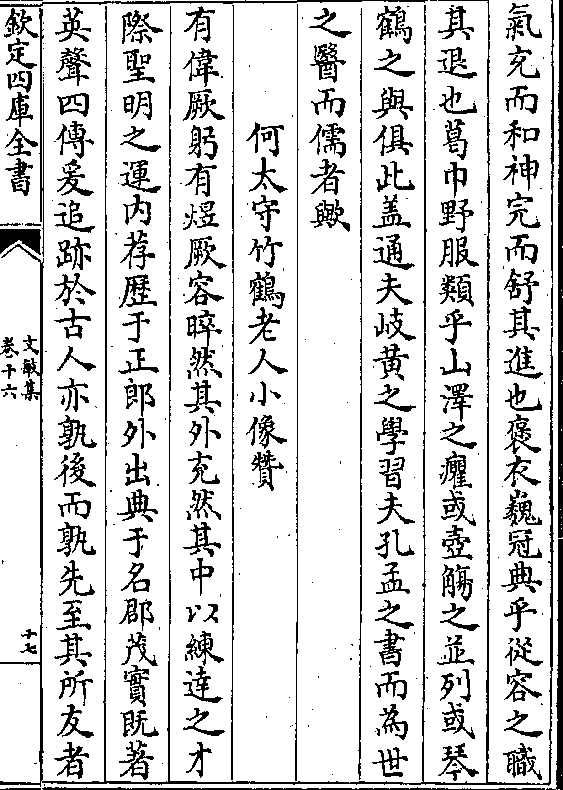 氣充而和神完而舒其進也褒衣巍冠典乎從容之職
其退也葛巾野服類乎山澤之癯或壺觴之並列或琴
鶴之與俱此盖通夫岐黄之學習夫孔孟之書而為世
之醫而儒者歟
何太守竹鶴老人小像贊
有偉厥躬有煜厥容晬然其外充然其中以練達之才
際聖明之運内荐歴于正郎外出典于名郡茂實既著
英聲四傳爰追跡於古人亦孰後而孰先至其所友者
欽定四庫全書
文敏集
卷十六
十七